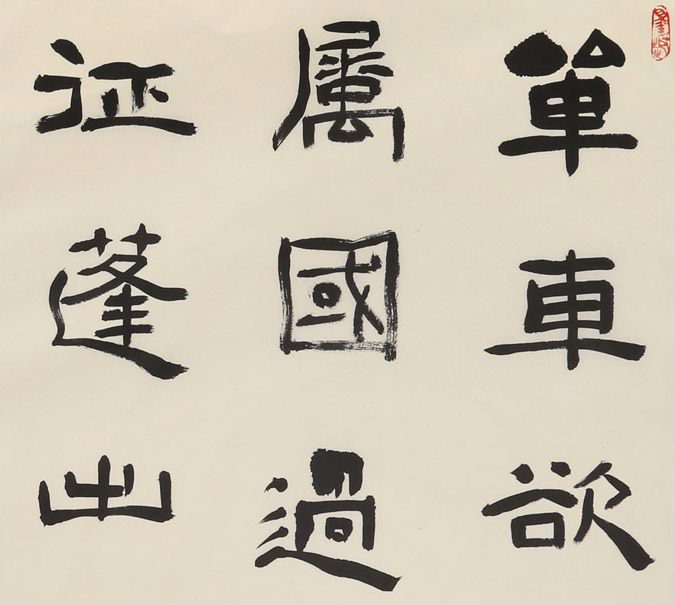 單車欲
属國過
征蓬出